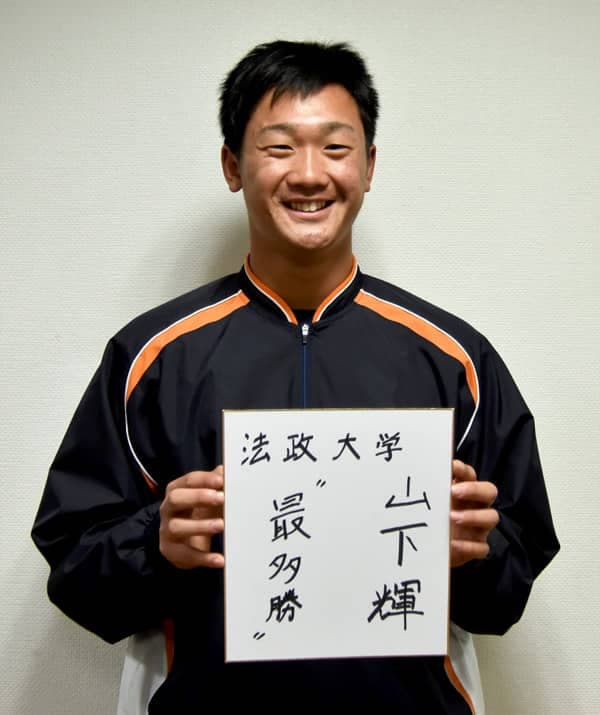 法政大学
山下輝
〝最多勝〟